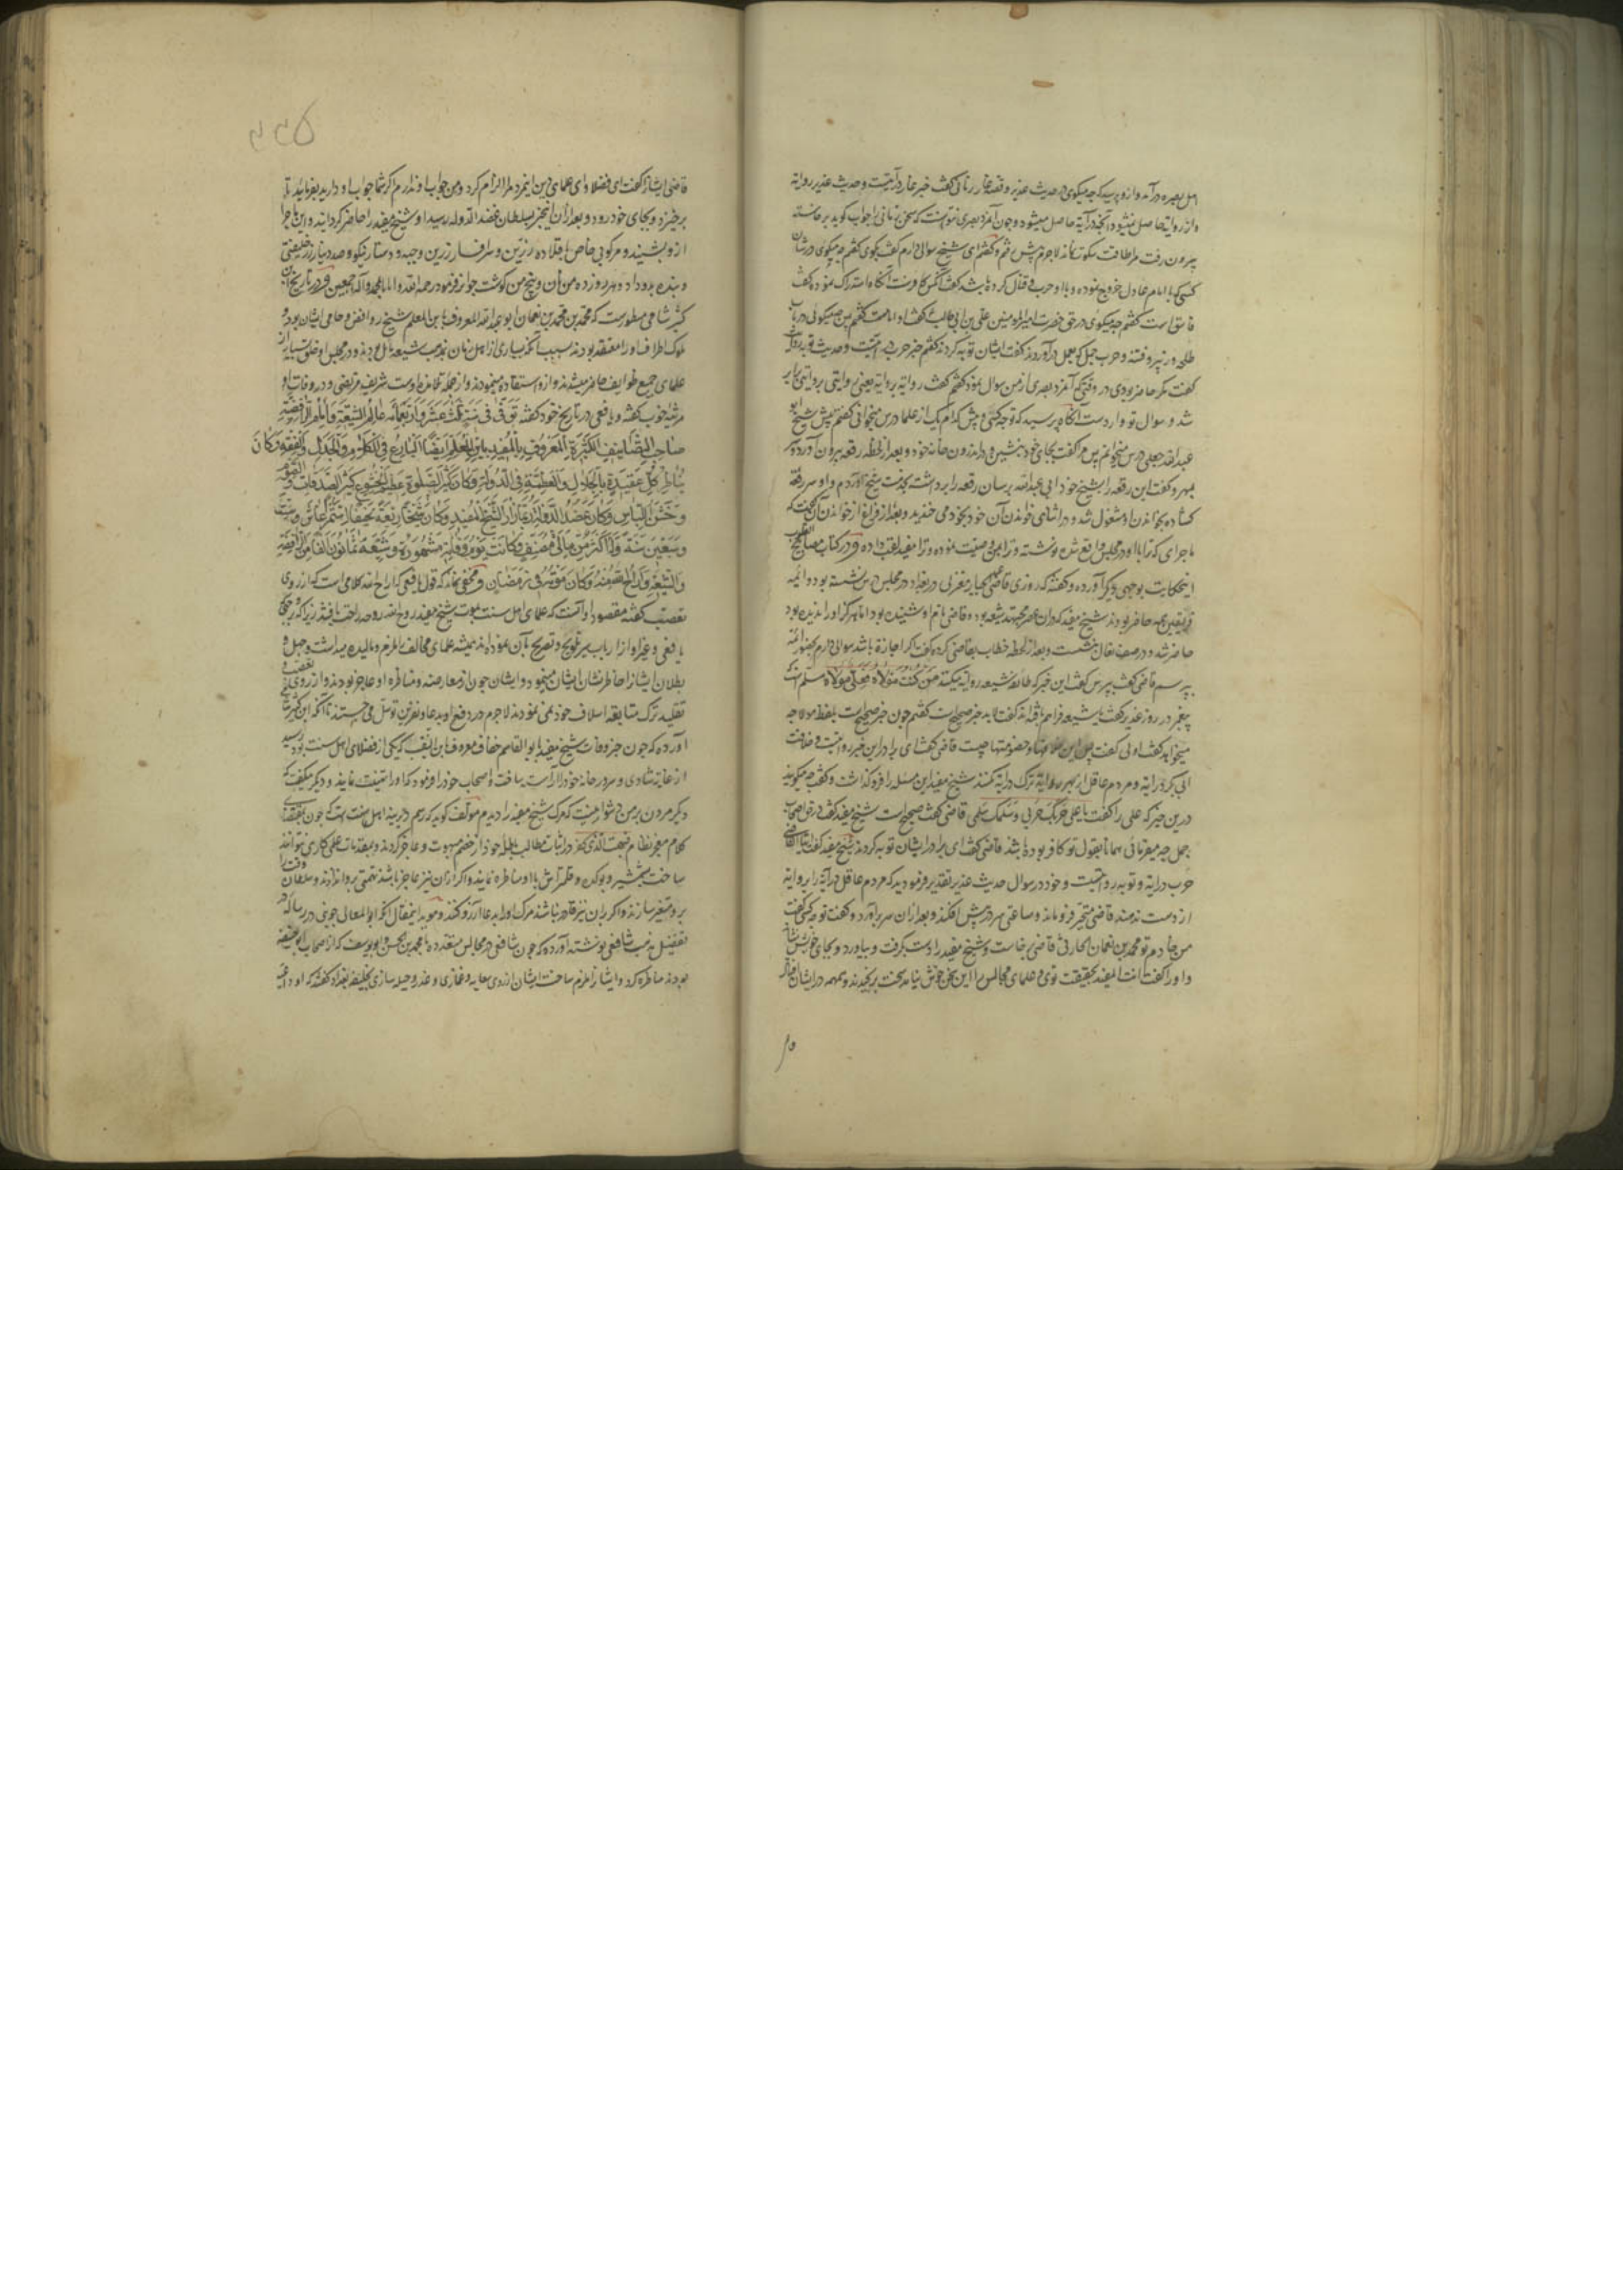 اهل بصره درآمد و از و پرسید که چه میگوی در حدیث غدیر و قصه غار رمانی گفت خبر غار درآیتست و حدیث غدیر روایة
و از روایة حاصل نمیشود آنچه از درآیة حاصل میشود و چون آنمرد بصری نتوانست که سخن رمانی را جواب گوید برخاسته
بیرون رفت مرا طاقت سکوت نماند لاجرم پیش رفتم و گفتم ای شیخ سوالی دارم گفت بگوی گفتم چه میگوی در شان
کسی که با امام عادل خروج نموده و با او حرب و قتال کرده باشد گفت آنکس کافرست آنگاه استدراک نموده گفت
فاسق است گفتم چه میگوی در حق حضرت امیرالمومنین علی بن ابی طالب ع گفت او امامست گفتم پس چه میگوئی در باب
طلحه و زبیر و فتنه و حرب جمل که بعمل درآوردند گفت ایشان توبه کردند گفتم خبر حرب درایتست و حدیث توبه روایة
گفت مگر حاضر بودی در وقتیکه آنمرد بصری از من سوال نمود گفتم گفت روایة بروایة یعنی روایتی بروایتی برابر
شد و سوال تو واردست آنگاه پرسید که تو چه کسی و پیش کدام یک از علما درس میخوانی گفتم پیش شیخ ابو
عبدالله جعلی درس میخوانم پس مرا گفت بجای خود بنشین و در اندرون خانه خود و بعد از لحظه رقعه بیرون آورد
بمهر و گفت این رقعه را بشیخ خود ابی عبدالله برسان رقعه را برداشته بخدمت شیخ آوردم و او سر رقعه
گشاده بخواندن او مشغول شد و در اثنای خواندن آن خود بخود می خندید و بعد از فراغ از خواندن آن گفت که
ماجرای که ترا با او در مجلس واقع شده نوشته و ترا بمن وصیت نموده و ترا مفید لقب داده و در کتاب مصابیح القلوب
اینحکایت بوجهی دیگر آورده و گفته که روزی قاضی عبدالجبار معتزلی در بغداد در مجلس درس نشسته بود و ائمه
فریقین همه حاضر بودند شیخ مفید که در آن عصر مجتهد شیعه بود و قاضی نام او شنیده بود اما هرگز او را ندیده بود
حاضر شد و در صف نعال بنشست و بعد از لحظه خطاب بقاضی کرده گفت اگر اجازة باشد سوالی دارم بحضور ائمه
بپرسم قاضی گفت بپرس گفت این خبر که طایفه شیعه روایة میکنند من کنت مولاه فعلی مولاه مسلم است که
پیغمبر در روز غدیر گفت یا شیعه فراهم یافته اند گفت لا به خبر صحیح است گفتم چون خبر صحیح است بلفظ مولا چه
میخواهد گفت اولی گفت پس این خلافها و خصومتها چیست قاضی گفت ای برادر این خبر روایتست و خلافت
ابی بکر درایة و مردم عاقل از بهر روایة ترک درایة نکنند شیخ مفید این مسئله را فرو گذاشت و گفت چه میگویید
درین خبر که علی را گفت یا علی حربک حربی و سلمک سلمی قاضی گفت صحیح است شیخ مفید گفت در حق اصحاب
جمل چه میفرمائی همانا بقول تو کافر بوده باشند قاضی گفت ای برادر ایشان توبه کردند شیخ مفید گفت ایها القاضی
حرب درایة و توبه روایتست و خود در سوال حدیث غدیر تقدیر فرمودید که مردم عاقل درآیة را بروایة
از دست ندهند قاضی متحیر فرو ماند و ساعتی سر در پیش افکند و بعد از آن سر برآورد و گفت تو چه کسی گفت
من خادم تو محمد بن نعمان الحارثی قاضی برخاست و شیخ مفید را دست بگرفت و بیاورد و بجای خویش نشاند
و او را گفت انت المفید بحقیقت توی و علمای مجالس را این سخن خوش نیامد سخت برنجیدند و همهمه در ایشان افتاد
قاضی ایشانرا گفت ای فضلا و ای علمای دین اینمرد مرا الزام کرد و من جواب او ندارم اگر شما جواب او دارید بفرمایید تا
برخیزد و بجای خود رود و بعد از آن اینخبر بسلطان عضدالدوله رسید او شیخ مفید را حاضر گردانید و این ماجرا
از و بشنید و مرکوبی خاص با قلاده زرین و سرافسار زرین و جبه و دستار نیکو و صد دینار زر خلیفتی
و بنده بدو داد و هر روز ده من نان و پنج من گوشت جوائز فرمود رحمة الله و ایانا بمحمد و آله اجمعین و در تاریخ ابن
کثیر شامی مسطورست که محمد بن محمد بن نعمان ابو عبدالله المعروف بابن المعلم شیخ روافض و حامی ایشان بود و
ملوک اطراف او را معتقد بودند بسبب آنکه بسیاری از اهل زمان بمذهب شیعه مایل بودند و در مجلس او خلق بسیار از
علمای جمیع طوایف حاضر میشدند و از و استفاده مینمودند و از جمله تلامذه اوست شریف مرتضی و در وفات او
مرثیه خوب گفته و یافعی در تاریخ خود گفته توفی فی سنة ثلث عشر و اربعمائه عالم الشیعة و امام الرافضة
صاحب التصانیف الکثیرة المعروف بالمفید بابن المعلم ایضا البارع فی الکلام و الجدل و الفقه و کان
یناظر کل عقیدة بالجلال و العظمة فی الدولة و کان کثیر الصلوة عظیم الخشوع کثیر الصدقات و الصوم
و خشن اللباس و کان عضد الدولة ربما زار الشیخ المفید و کان شیخا ربعة نحیفا اسمر عاش ستا
و سبعین سنة و له اکثر من مائتی مصنف و کانت یوم وفاته مشهودة و شیعه ثمانون الفا من الرافضة
و الشیعة و اراح الله منه و کان موته فی رمضان و مخفی نماند که قول یافعی که اراح الله کلامی است که از روی
تعصب گفته مقصود او آنست که علمای اهل سنت بموت شیخ مفید روح الله روحه راحت یافتند زیرا که بر وجهی
یافعی و غیر او از ارباب سیر تلویح و تصریح بآن نموده اند همیشه علمای مخالف ملزم و مالیده میداشت و جهل و
بطلان ایشانرا خاطرنشان ایشان مینمود و ایشان چون از معارضه و مناظره او عاجز بودند و از روی تعصب و
تقلید ترک متابعة اسلاف خود نمی نمودند لاجرم در دفع او بدعا و نفرین توسل می جستند تا آنکه ابن کثیر شامی
آورده که چون خبر وفات شیخ مفید بابو القاسم خفاف معروف بابن النقیب که یکی از فضلای اهل سنت بود رسید
از غایة شادی و سرور خانه خود را آراست و اصحاب خود را فرمود که او را تهنیت نمایند و دیگر میگفت که
دیگر مردن بر من دشوار نیست که مرگ شیخ مفید را دیدم مولف گوید که رسم دیرینه اهل سنت است که چون بمقتضای
کلام معجز نظام فبهت الذی کفر در اثبات مطالب باطله خود از خصم مبهوت و عاجز گردند و بمقدمات علمی کاری نتوانند
ساخت بشمشیر و بوکده و قلمتراش با او مناظره نمایند و اگر از آن نیز عاجز باشند تهمتی برو اندازند و سلطان وقت را
برو متغیر سازند و اگر بر آن نیز قادر نباشند مرگ او را بدعا آرزو کنند و موید اینمقال آنکه ابو المعالی جوینی در رساله که در
تفضیل مذهب شافعی نوشته آورده که چون شافعی در مجالس متعدده با محمد بن الحسن و ابو یوسف که از اصحاب ابو حنیفه
بودند مناظره کرد و ایشانرا ملزم ساخت ایشان از روی سعایه و غمازی و غدر و حیله سازی بخلیفه بغداد گفتند که او داعیه